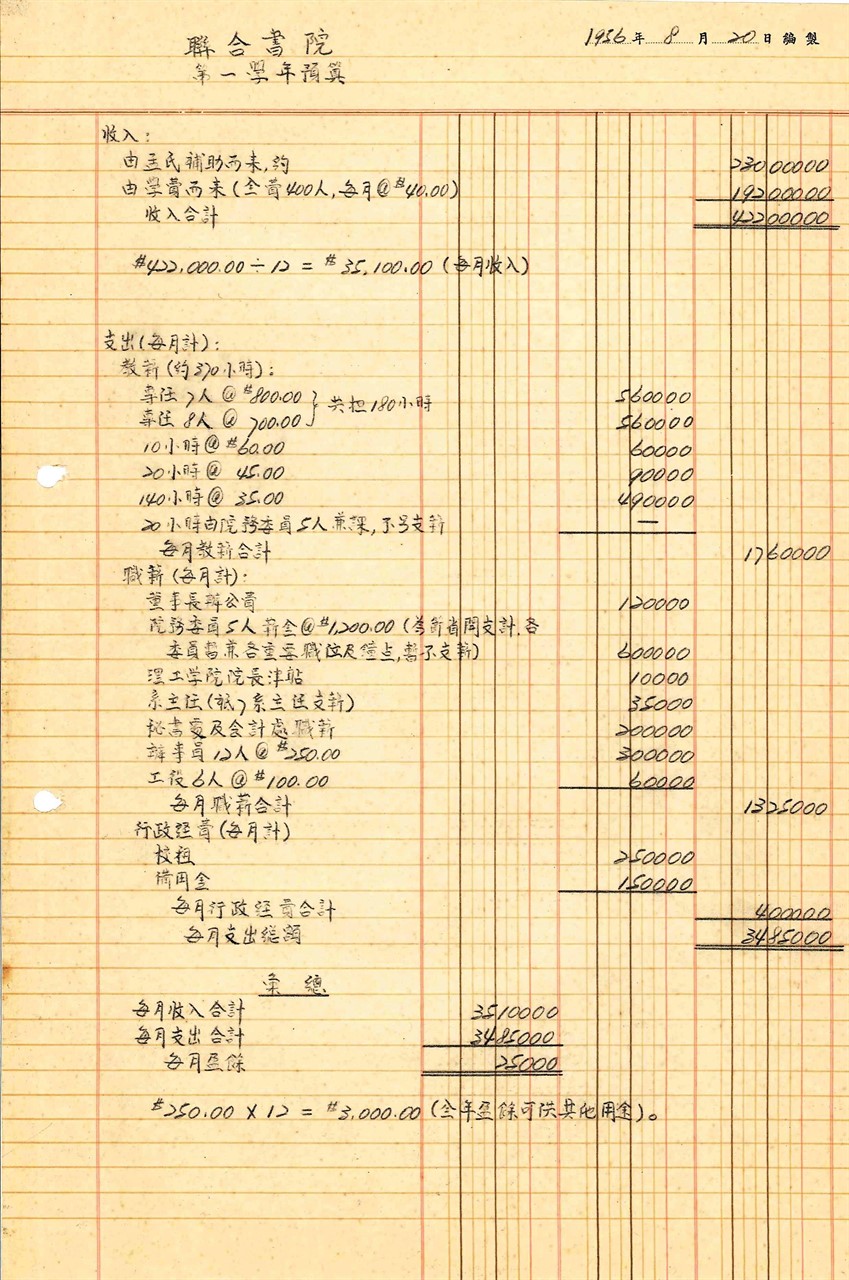 1956年 8月 20日編製
聯合書院
第一學年預算
收入：
由孟氏補助而來,約 23000000
由學費而來(全費400人,每月@$40.00) 19200000
收入合計 42200000
$422,000.00 ÷ 12 = $35,100.00 (每月收入)
支出(每月計)：
教薪(約370小時)：
專任 7人 @ $800.00 560000
共担180小時
專任 8人 @ 700.00 560000
10小時@ $60.00 60000
20小時@ 45.00 90000
140小時@ 35.00 490000
20小時由院務委員5人兼課,不另支薪 —
每月教薪合計 1760000
職薪(每月計)：
董事長辦公費 120000
院務委員5人薪金@$1,200.00 (為節省開支計,各
委員暫兼各重要職位及鐘点,暫不支薪) 600000
理工学院院長津貼 10000
系主任(祇7系主任支薪) 35000
秘書處及会計處職薪 200000
辦事員12人@$250.00 300000
工役6人@$100.00 60000
每月職薪合計 1325000
行政經費(每月計)
校租 250000
備用金 150000
每月行政經費合計 400000
每月支出總額 3485000
彙總
每月收入合計 3510000
每月支出合計 3485000
每月盈餘 25000
$250.00 × 12 = $3,000.00 (全年盈餘可供其他用途)。